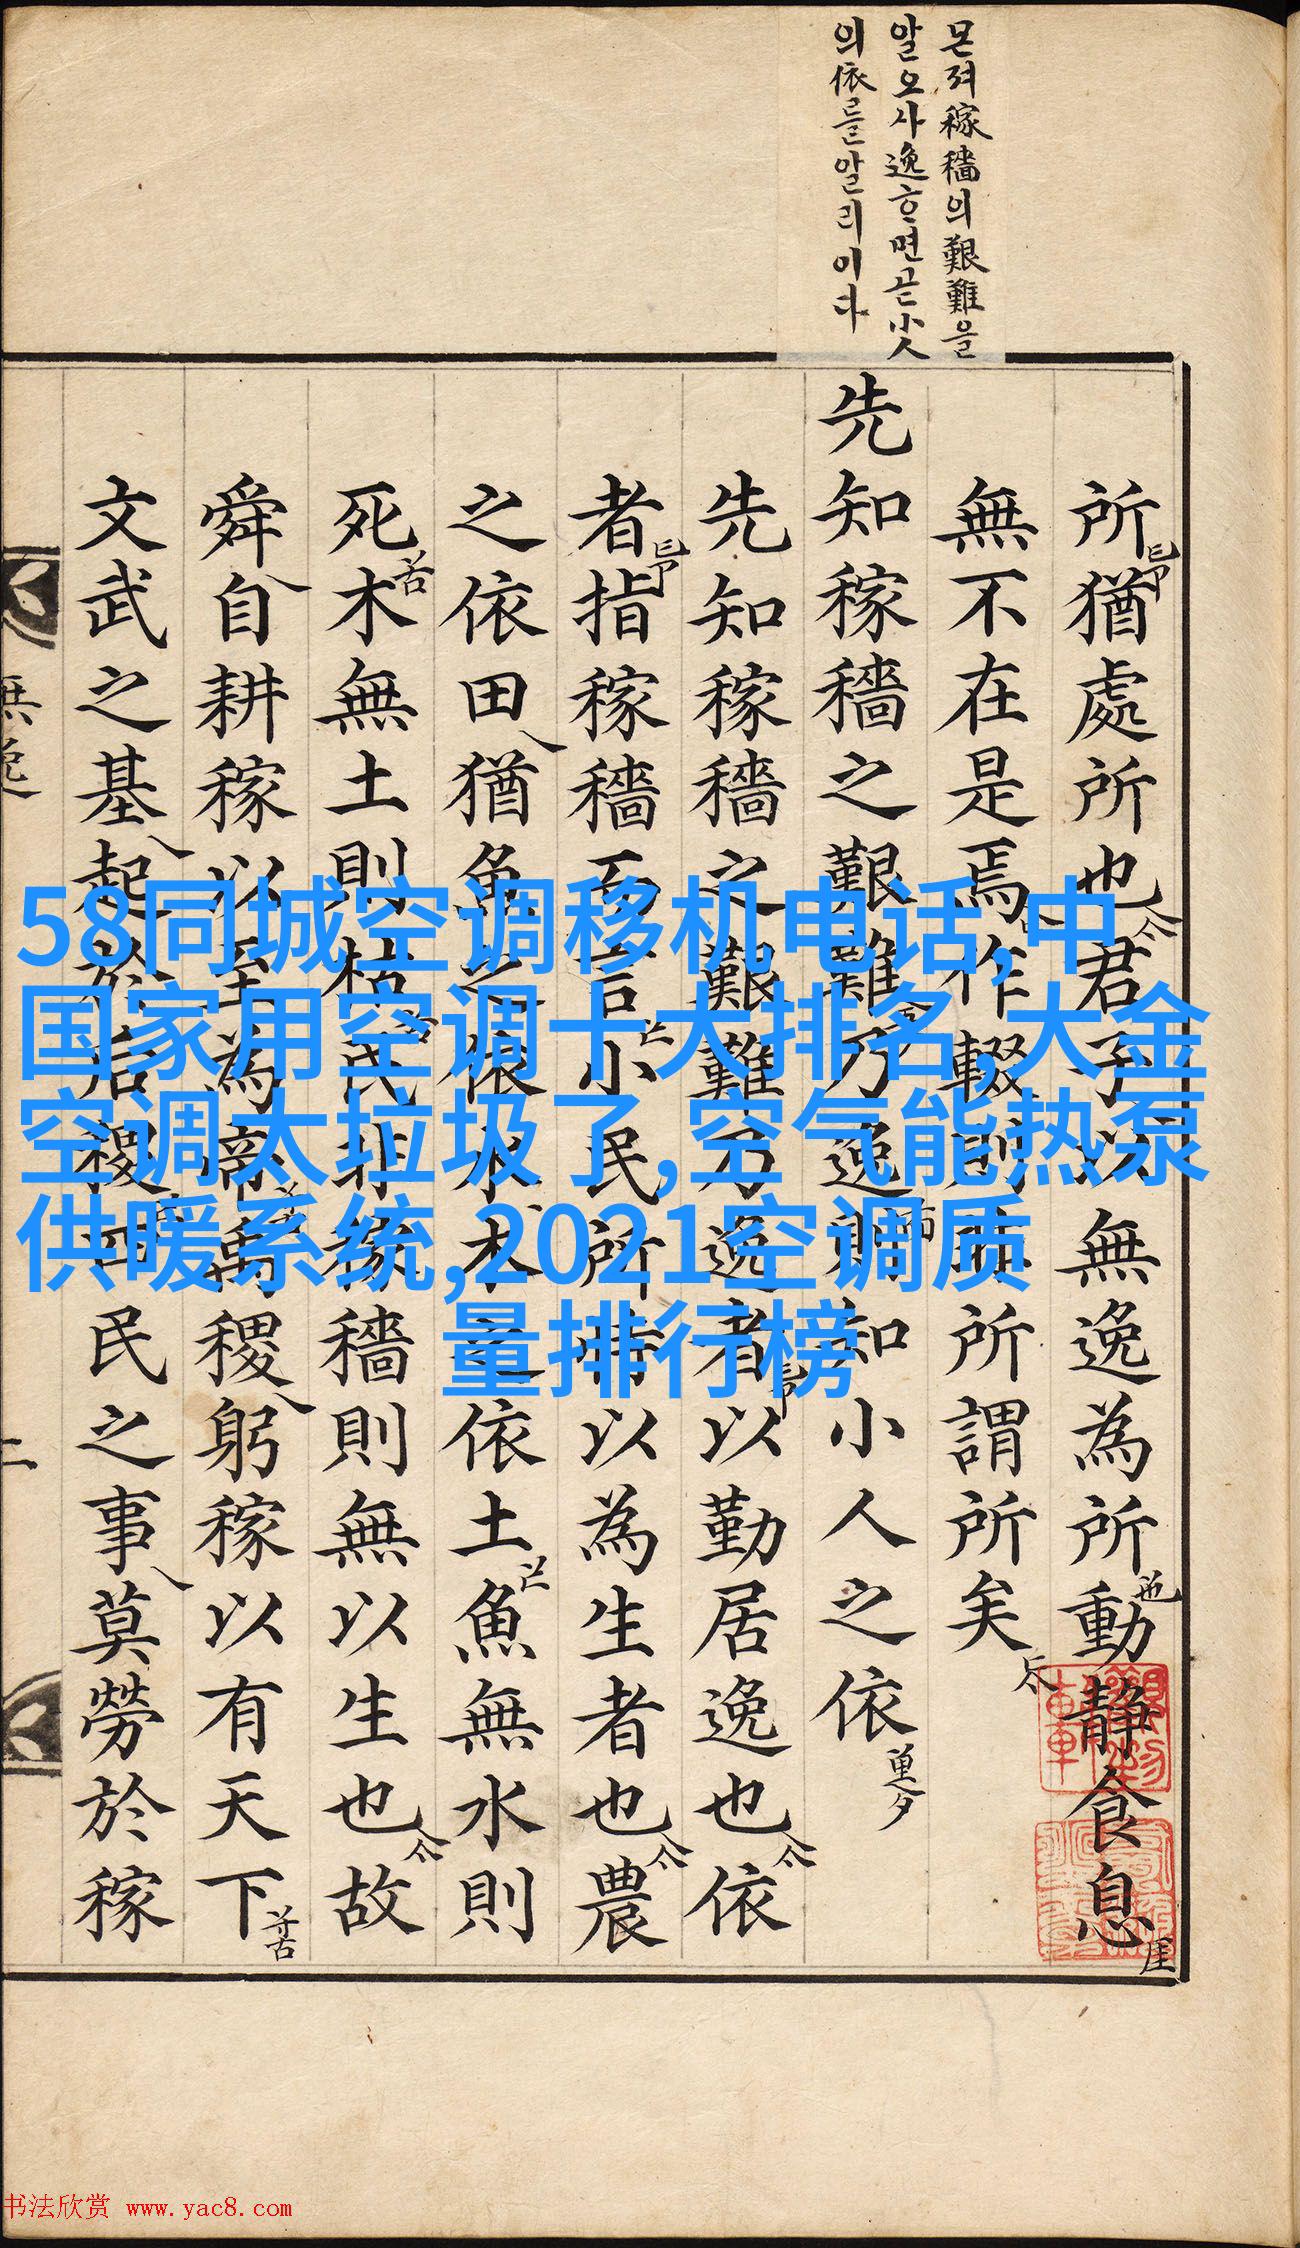 몬져稼穡의艱難을
알오사逸ᄒᆞ면곧小人
의依를알리이다
所猶處所也君子以無逸為所動靜食息
無不在是焉作輟則非所謂所矣
先知稼穡之艱難乃逸則知小人之依
先知稼穡之艱難乃逸者以勤居逸也依
者指稼穡而言小民所恃以為生者也農
之依田猶魚之依水木之依土魚無水則
死木無土則枯民非稼穡則無以生也故
舜自耕稼以至為帝禹稷躬稼以有天下
文武之基起於后稷四民之事莫勞於稼
無逸
二
58同城空调移机电话,中
国家用空调十大排名,大金
空调太垃圾了,空气能热泵
供暖系统,2021空调质
量排行榜
书法欣赏 www.yac8.com